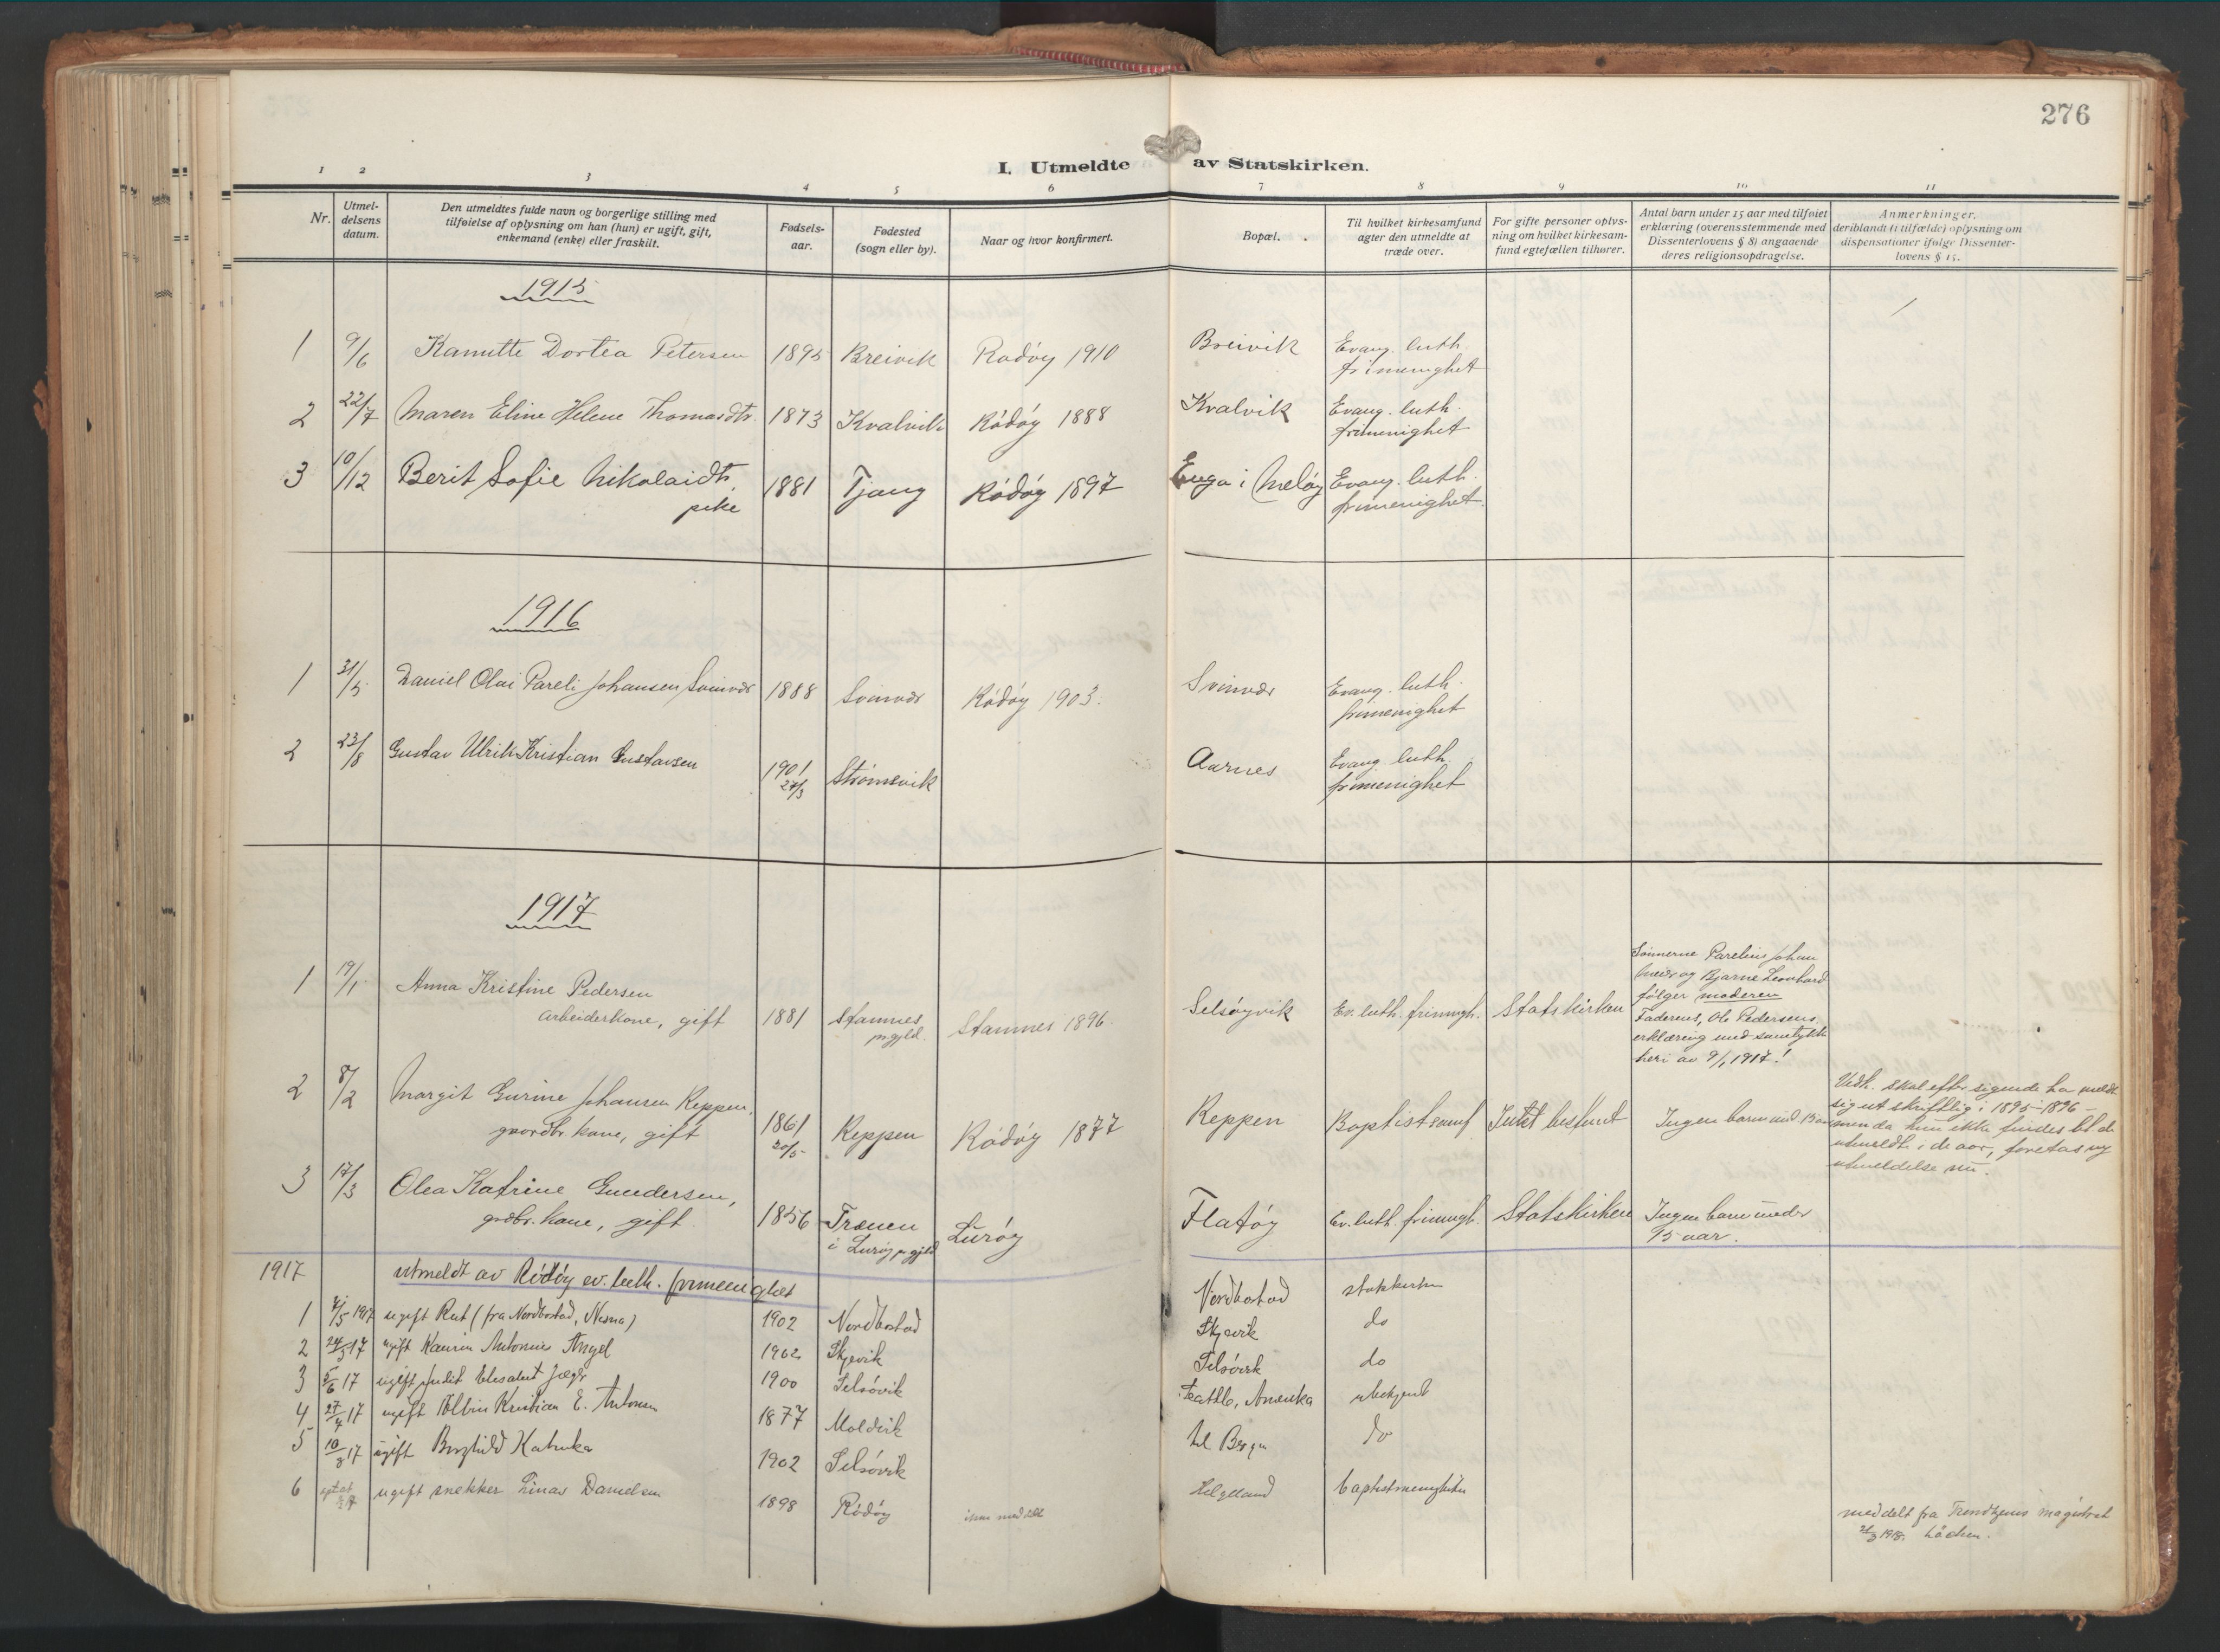 276
I. Utmeldte av Statskirken.
1 2 3 4 5 6 7 8 9 10 11
Nr.
Utmel-
delsens
datum.
Den utmeldtes fulde navn og borgerlige stilling med
tilføielse af oplysning om han (hun) er ugift, gift,
enkemand (enke) eller fraskilt.
Fødsels-
aar.
Fødested
(sogn eller by).
Naar og hvor konfirmert.
Bopæl.
Til hvilket kirkesamfund
agter den utmeldte at
træde over.
For gifte personer oplys-
ning om hvilket kirkesam-
fund egtefællen tilhører.
Antal barn under 15 aar med tilføiet
erklæring (overensstemmende med
Dissenterlovens § 8) angaaende
deres religionsopdragelse.
Anmerkninger,
deriblandt (i tilfælde) oplysning om
dispensationer ifølge Dissenter-
lovens § 15.
1915
1 9/6 Kanutte Dortea Petersen 1895 Breivik Rødøy 1910 Breivik Evang. luth.
frimenighet
2 22/7 Maren Eline Helene Thomasdtr. 1873 Kvalvik Rødøy 1888 Kvalvik Evang. luth.
frimenighet
3 10/12 Berit Sofie Nikolaidtr. 1881 Tjong Rødøy 1897 Enga i Meløy Evang. luth.
pike frimenighet.
1916
1 31/5 Daniel Olai Pareli Johansen Svinvær 1888 Svinvær Rødøy 1903. Svinvær Evang. luth.
frimenighet
2 23/8 Gustav Ulrik Kristian Gustavsen 1901 Strømsvik Aarnes Evang. luth.
27/3 frimenighet
1917
1 19/1 Anna Kristine Pedersen
arbeiderkone, gift 1881 Stamnes Stamnes 1896. Selsøyvik Ev. luth. frimngh. Statskirken
prgjld.
Sønnerne Parelius Johan
og Bjarne Leonhard
følger moderen
Faderens, Ole Pedersens,
erklæring med samtykke
heri av 9/1 1917!
2 8/2 Margit Gurine Johansen Reppen,
gaardbr. kone, gift 1861 Reppen Rødøy 1877 Reppen Baptistsamf Intet bestemt Ingen barn und. 15 aar
20/5
Vedk. skal efter sigende ha meldt
sig ut skriftlig i 1895-1896 -
men da hun ikke findes bl. de
utmeldte i de aar, foretas ny
utmeldelse nu.
3 17/3 Olea Katrine Gundersen,
grdbr. kone, gift. 1856 Trænen Lurøy Flatøy Ev. luth. frimngh. Statskirken Ingen barn under
i Lurøy prgjld 15 aar.
1917 utmeldt av Rødøy ev. luth. frimenighet
1 7/5 1917 ugift Rut (fra Nordbostad, Nesna) 1902 Nordbostad Nordbostad statskirken
2 24/5 17 ugift Antonie Angel 1902 Skjevik Skjevik do
3 5/6 17 ugift Judit Elisabet 1900 Selsøvik Selsøvik do
4 27/4 17 ugift Kristian E. Antonsen 1877 Moldvik Seattle, Amerika ubekjendt
5 10/8 17 ugift Borghild Katinka 1902 Selsøvik til Bergen do
6 ugift snekker Einar Danielsen 1898 Rødøy ikke meddelt Helgeland baptistmenigheten
meddelt fra Trondhjems magistrat